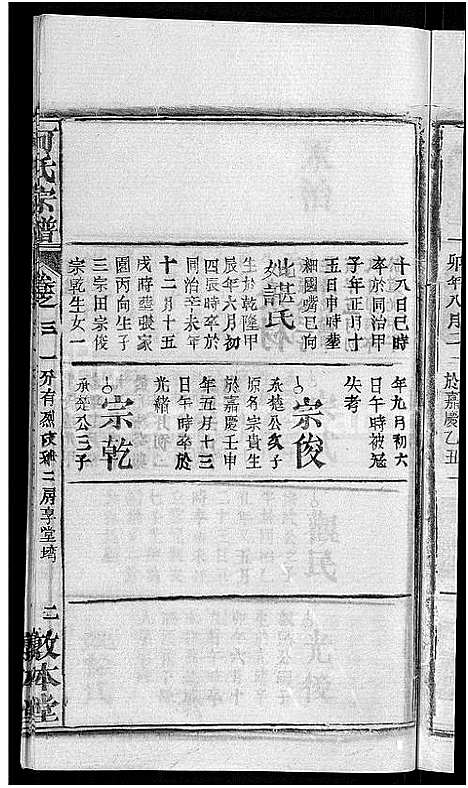 卯年八月二
於嘉慶乙丑
十八日巳時
卒於同治甲
子年正月十
五日申時葬
細園嘴巳向
妣諶氏
生於乾隆甲
辰年六月初
四辰時卒於
同治辛未年
十二月十五
戌時葬張家
園丙向生子
三宗田宗俊
宗乾生女一
年九月初六
日午時被冦
失考
宗俊
承楚公次子
原名宗貴生
於嘉慶壬申
年五月十三
日午時卒於
光緒
宗乾
承楚公三子
何氏宗譜
卷之三一
三
敦本堂